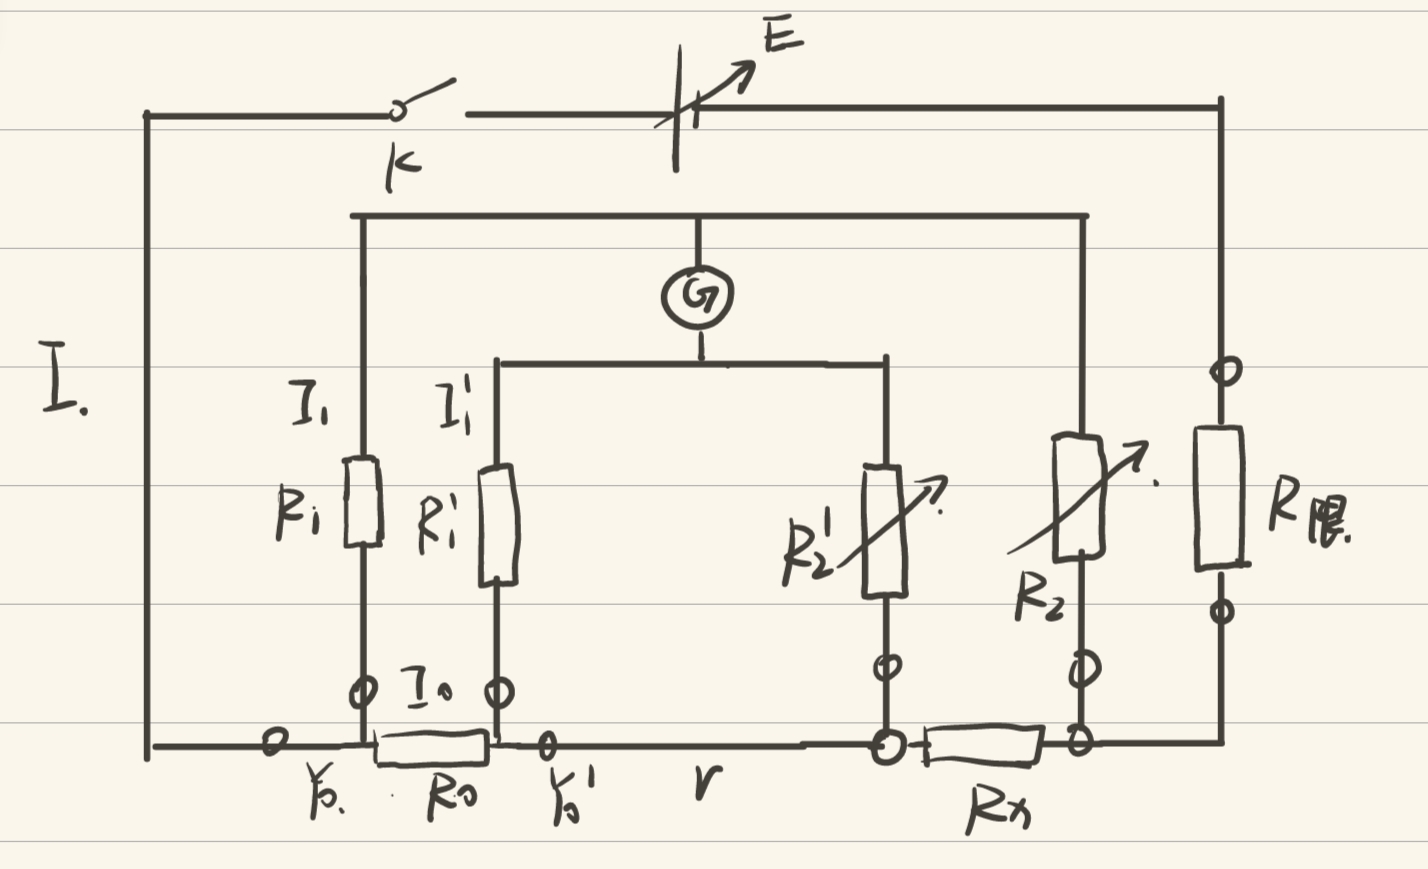 E
K
G
I.
I₁
I₁'
R₁
R₁'
R₂'
R₂
R限.
I₀
r₀.
R₀
r₀'
r
Rx